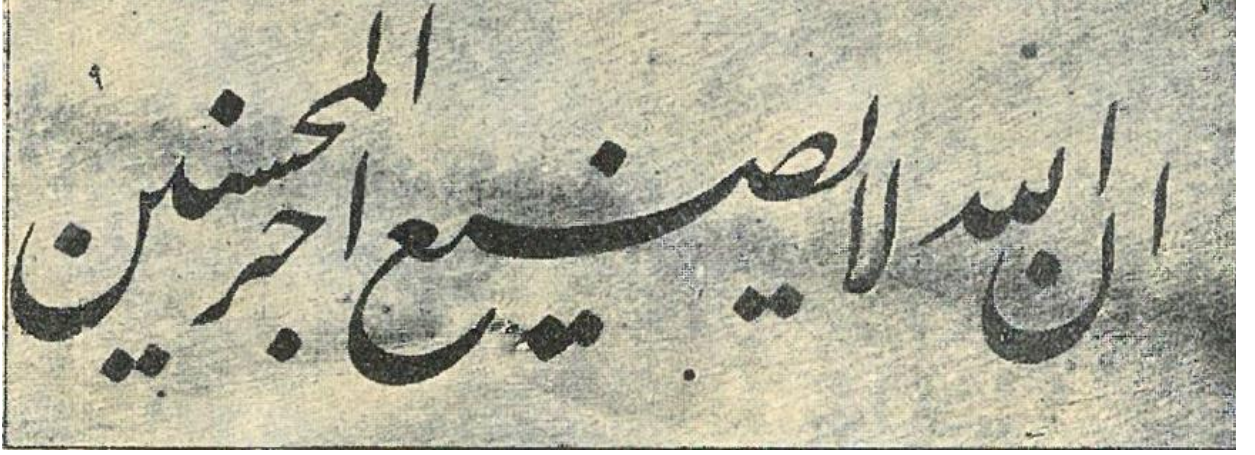 ان الله لا یضیع اجر المحسنین